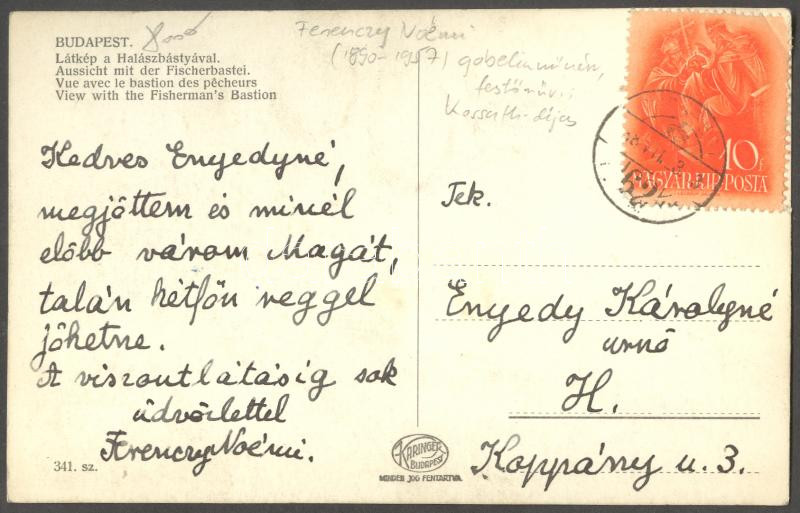 BUDAPEST.
Látkép a Halászbástyával.
Aussicht mit der Fischerbastei.
Vue avec le bastion des pêcheurs
View with the Fisherman's Bastion
Ferenczy Noémi
(1890-1957) gobelinművész,
festőműv.;
Kossuth-díjas
Kedves Enyedyné,
megjöttem és minél
előbb várom Magát,
talán hétfőn reggel
jöhetne.
A viszontlátásig sok
üdvözlettel
Ferenczy Noémi.
341. sz.
KARINGER
BUDAPEST
MINDEN JOG FENTARTVA
10 f
MAGYAR KIR. POSTA
Tek.
Enyedy Károlyné
urnő
H.
Koppány u. 3.